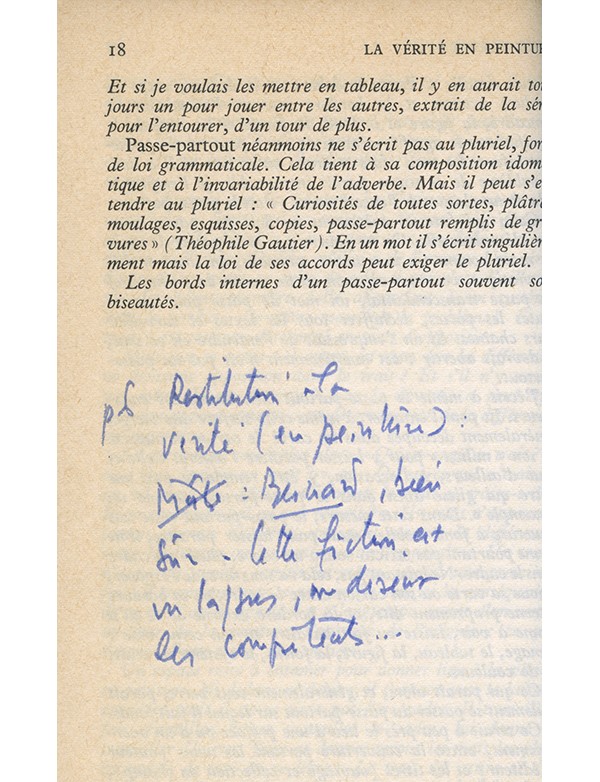 18 LA VÉRITÉ EN PEINTUR
Et si je voulais les mettre en tableau, il y en aurait tou
jours un pour jouer entre les autres, extrait de la sér
pour l'entourer, d'un tour de plus.
Passe-partout néanmoins ne s'écrit pas au pluriel, for
de loi grammaticale. Cela tient à sa composition idom
tique et à l'invariabilité de l'adverbe. Mais il peut s'e
tendre au pluriel : « Curiosités de toutes sortes, plâtre
moulages, esquisses, copies, passe-partout remplis de gr
vures » (Théophile Gautier). En un mot il s'écrit singulièr
ment mais la loi de ses accords peut exiger le pluriel.
Les bords internes d'un passe-partout souvent so
biseautés.
pS Restitution à la
vérité (en peinture) :
: Bernard, bien
sûr. Cette fiction est
un lapsus, me disent
les compétents...